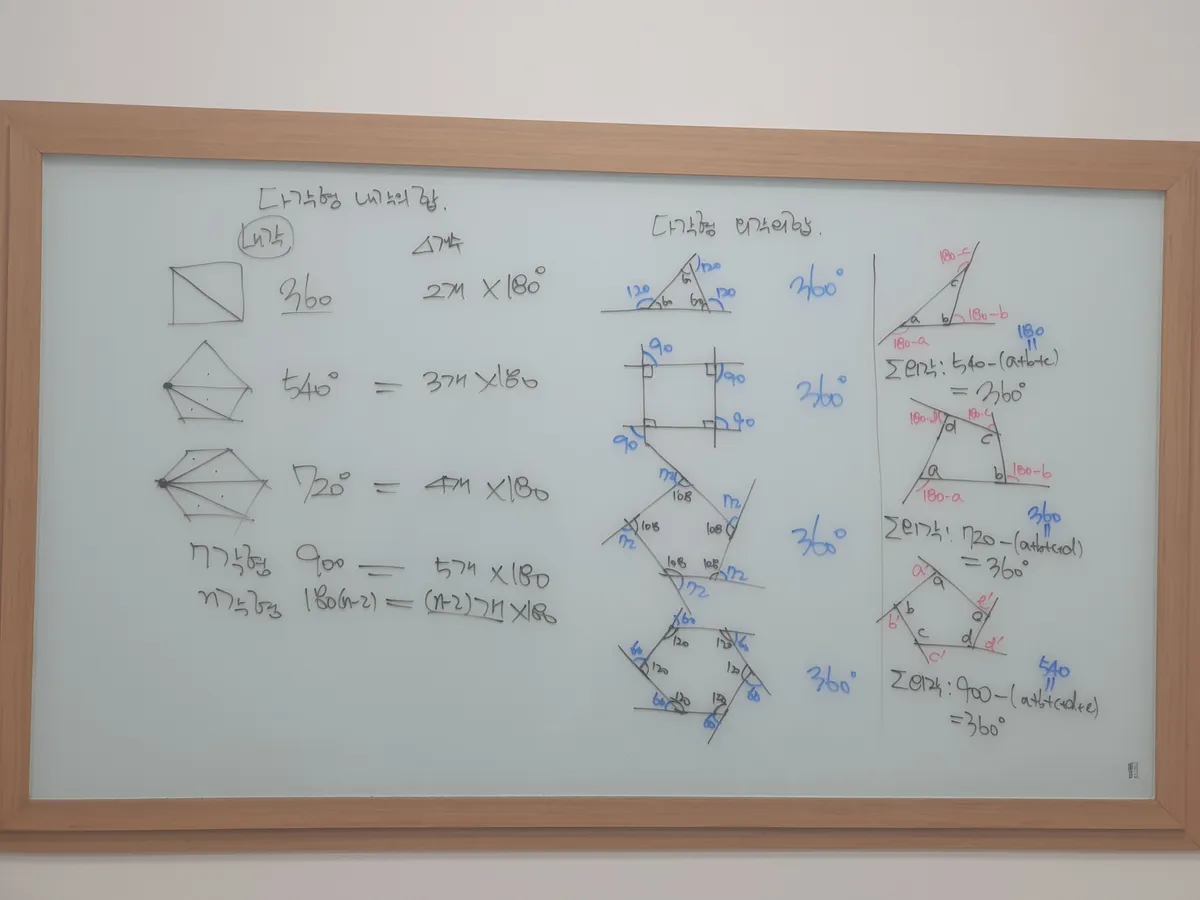 다각형 내각의합.
내각
△개수
360 2개 ×180°
540° = 3개 ×180
720° = 4개 ×180
7각형 900 = 5개 ×180
n각형 180(n-2) = (n-2)개 ×180
다각형 외각의합.
120
60
120
60
60
120
360°
90
90
90
90
360°
72
108
72
108
108
72
108
108
72
72
360°
60
120
120
60
60
120
120
60
60
120
120
60
360°
180-c
c
a
b
180-b
180-a
180
=
Σ외각: 540-(a+b+c)
= 360°
180-d
180-c
d
c
a
b
180-b
180-a
360
=
Σ외각: 720-(a+b+c+d)
= 360°
a'
a
b
b'
e'
e
c
d
d'
c'
540
=
Σ외각: 900-(a+b+c+d+e)
=360°